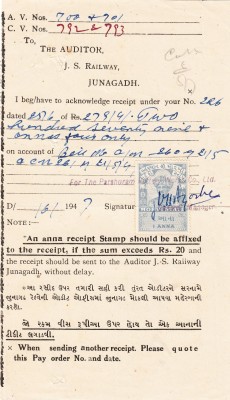 A. V. Nos. 700 & 701
C. V. Nos. 792 & 793
To,
THE AUDITOR,
J. S. RAILWAY,
JUNAGADH.
I beg/have to acknowledge receipt under your No. 226
dated 25/6 of Rs. 279/4/- Two
hundred seventy nine &
annas four only
on account of Bill No
For The Parshuram Co., Ltd.
D/ 194 Signature
1 ANNA
Manager.
NOTE:—
*An anna receipt Stamp should be affixed
to the receipt, if the sum exceeds Rs. 20 and
the receipt should be sent to the Auditor J-S. Railway
Junagadh, without delay.
આ રસીદ ઉપર તમારી સહી કરી તુરત ઓડીટરને સરનામે
જુનાગઢ રેલવેની ઓડીટ ઓફીસમાં જુનાગઢ મોકલી આપવા મહેરબાની
કરશો.
જો રકમ વીસ રૂપીઆ ઉપર હોય તો એક આનાની
ટીકીટ લગાવવી.
× When sending another receipt. Please quote
this Pay order No. and date.